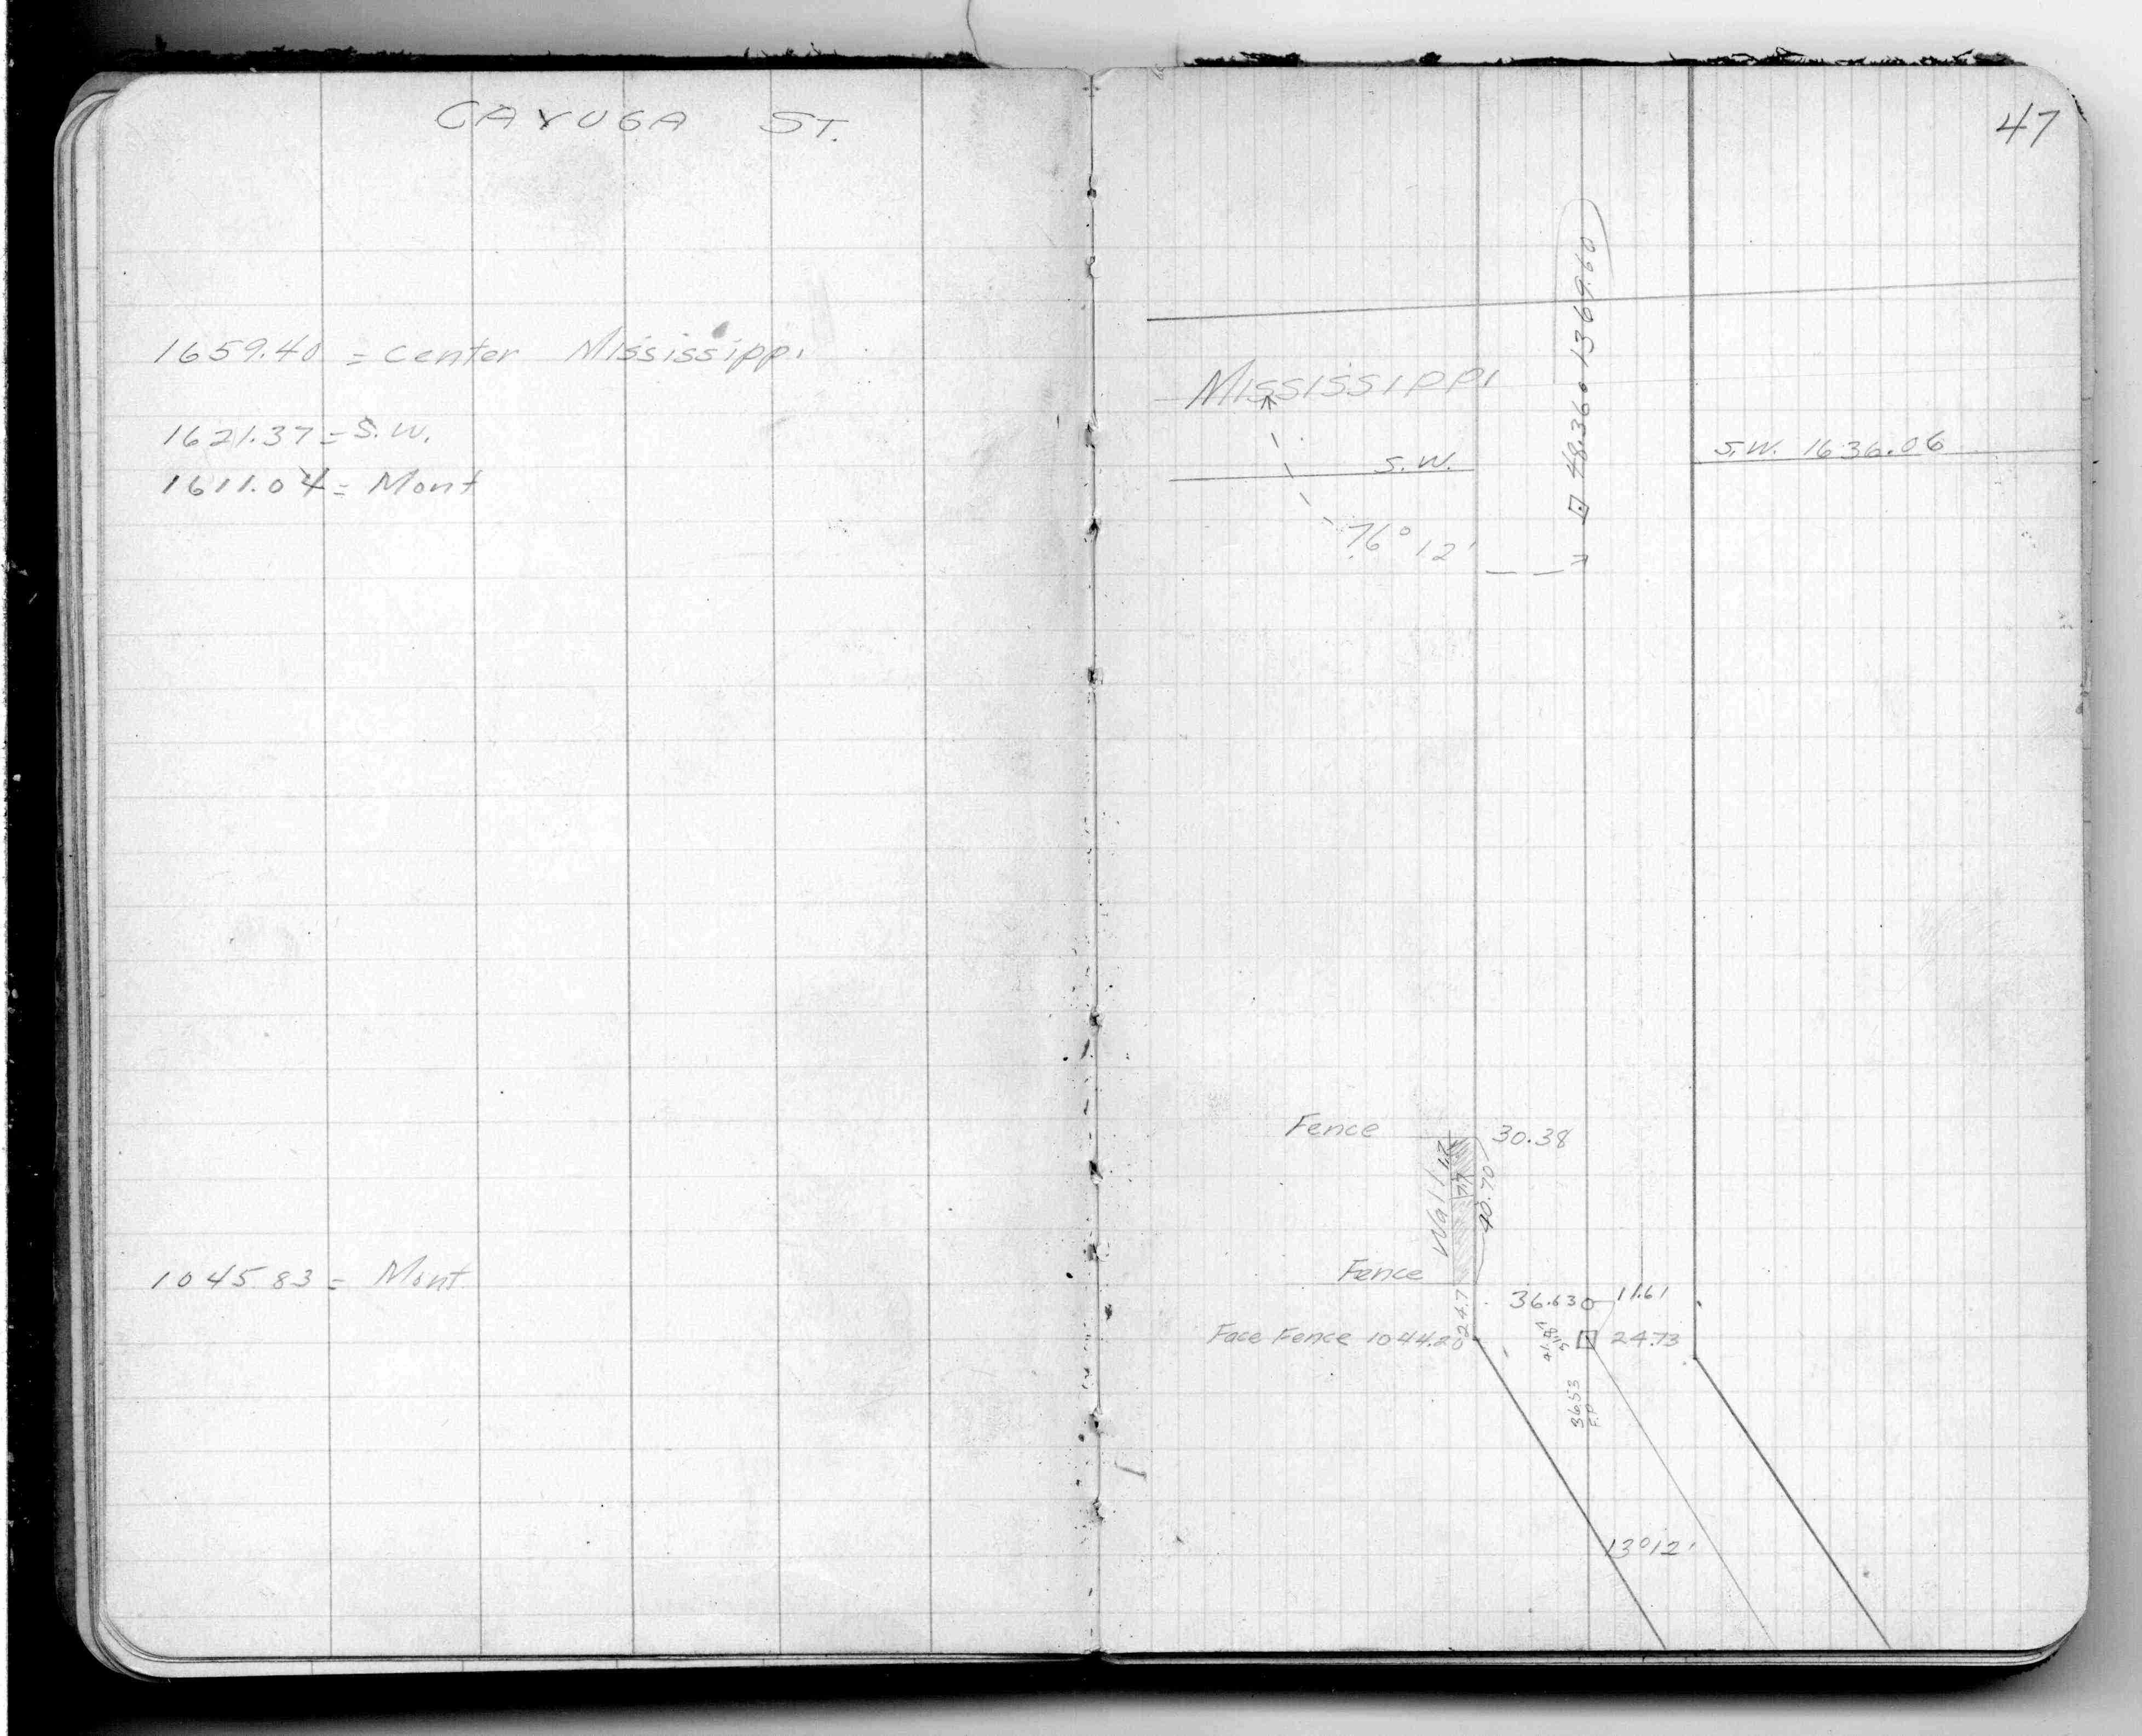 CAYUGA ST.
1659.40 = Center Mississippi
1621.37 = S.W.
1611.04 = Mont
1045.83 = Mont
47
Mississippi
S.W.
S.W. 1636.06
76° 12'
Fence
30.38
Wall
40.70
Fence
24.7
36.63
11.61
Face Fence 1044.20
24.73
36.53
13°12'